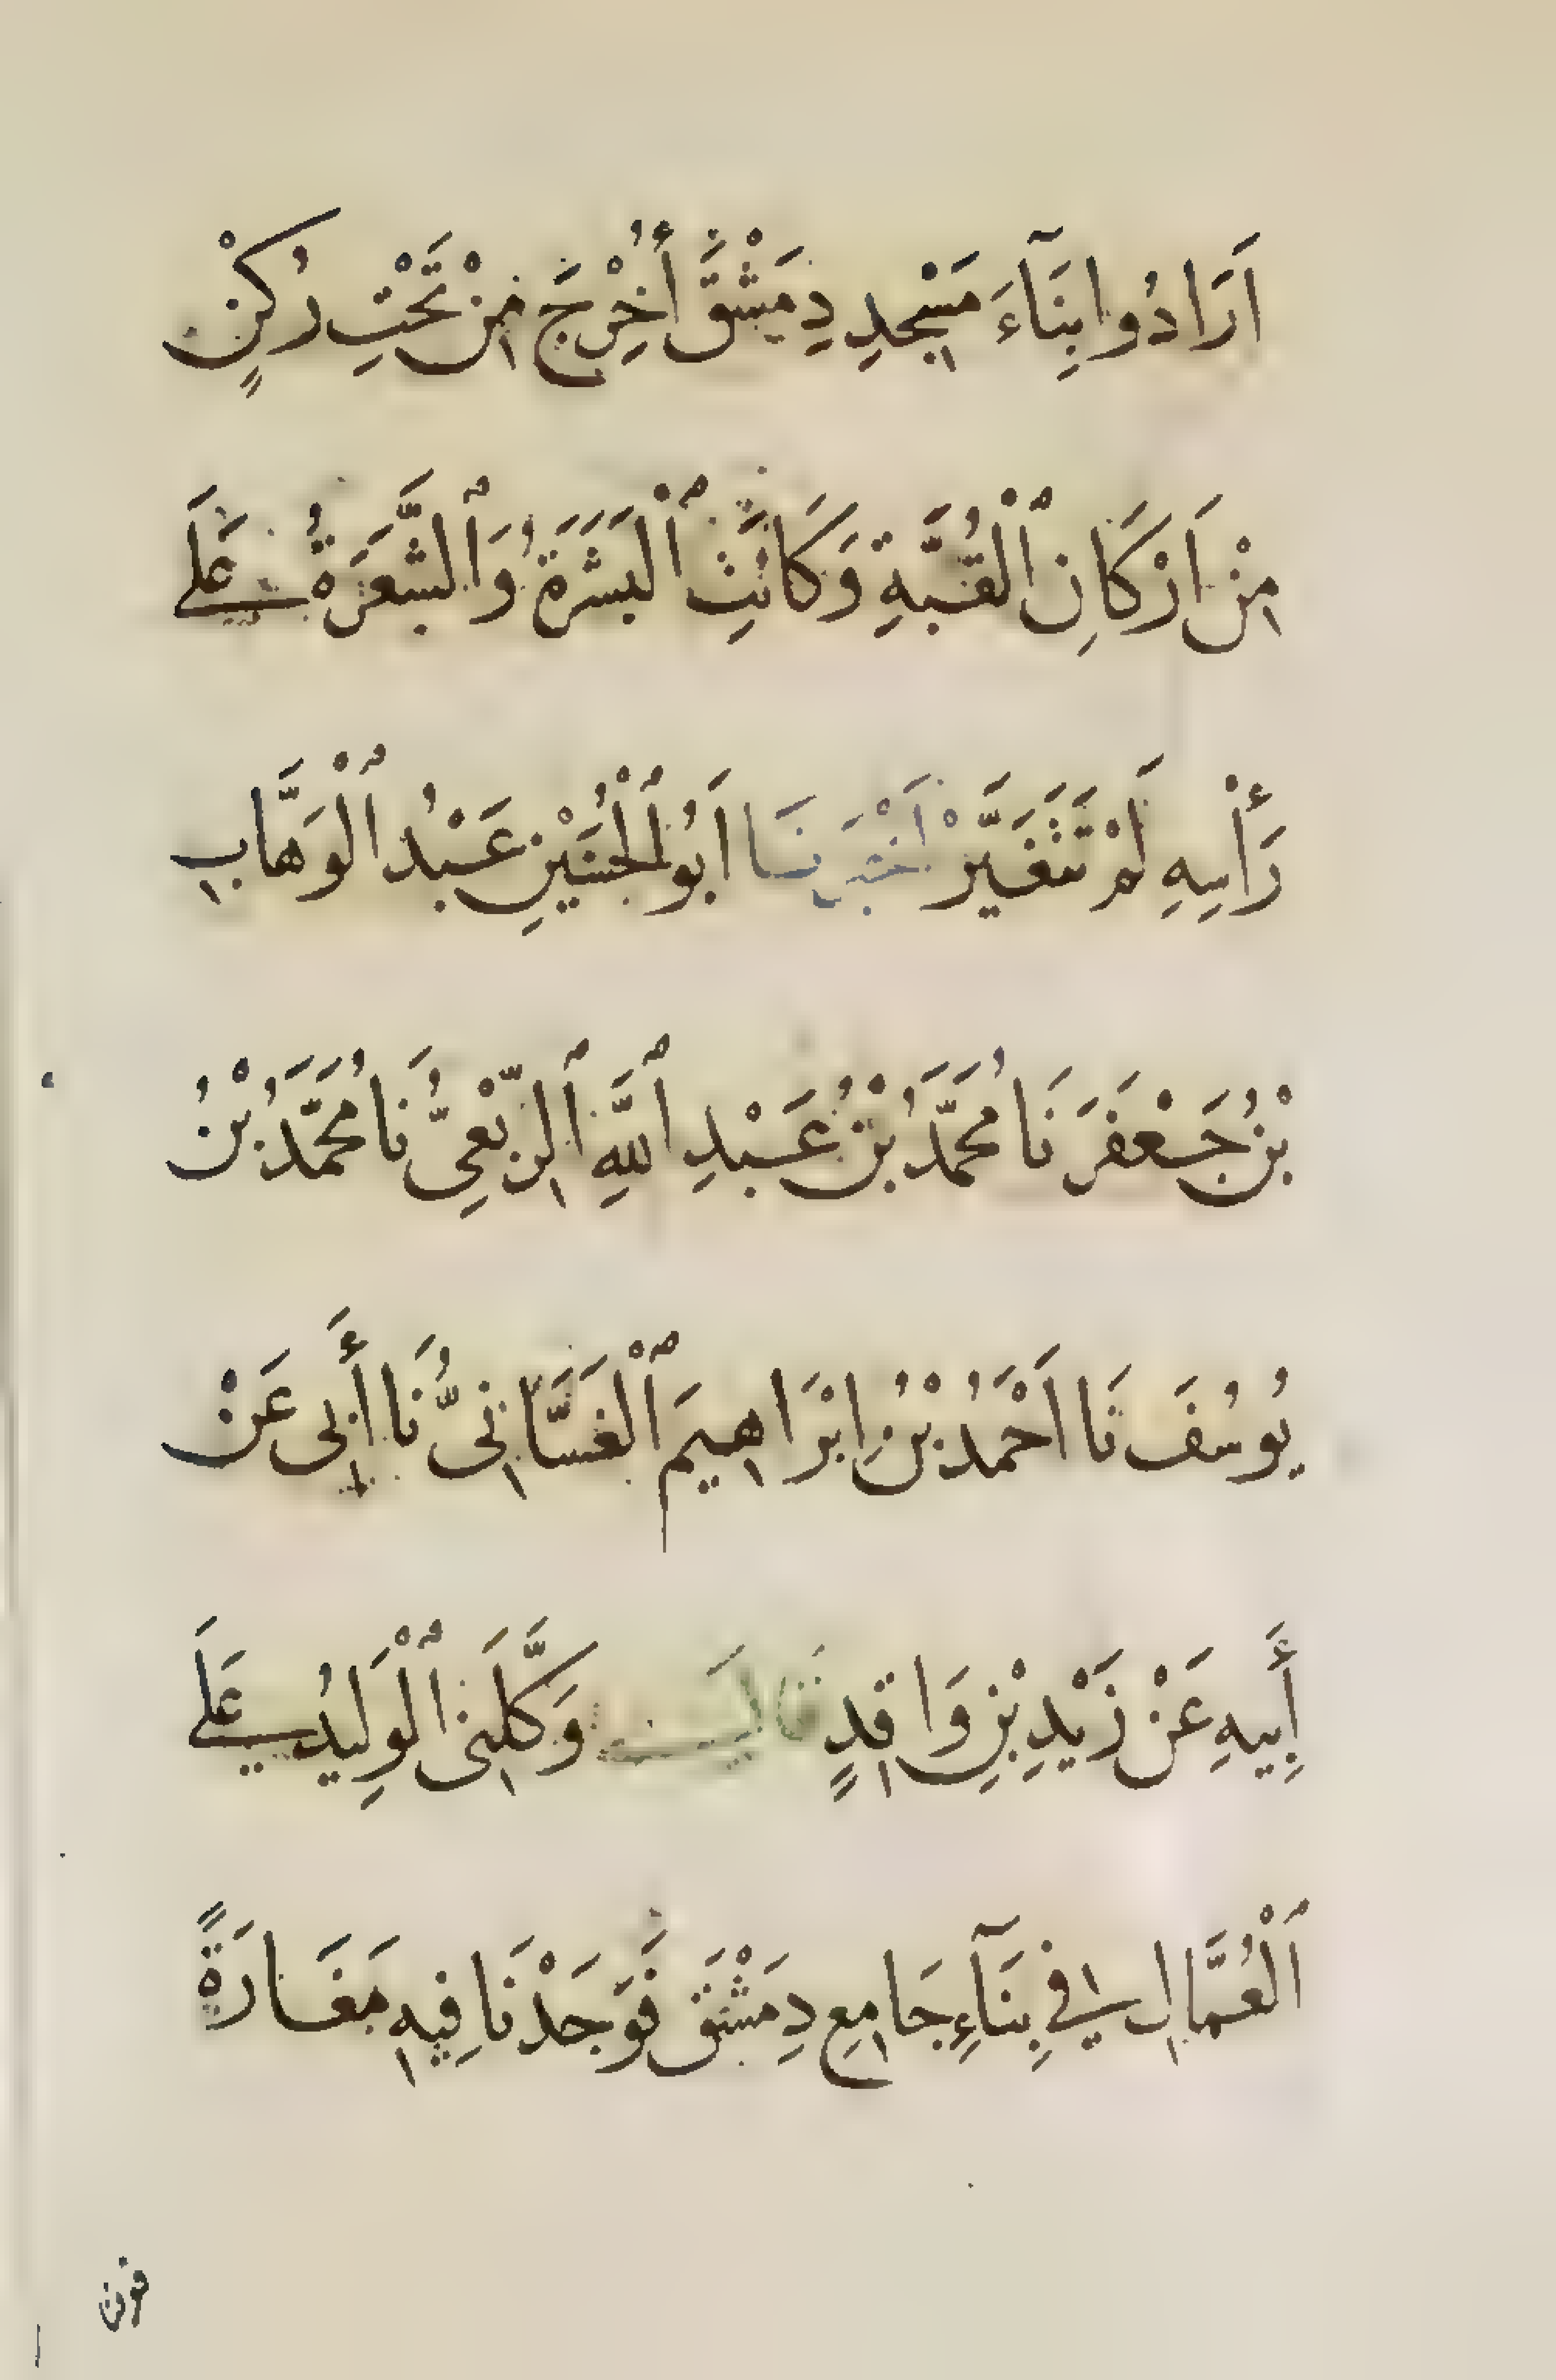 اَرَادُوا بِنَآءَ مَسْجِدِ دِمَشْقَ أُخْرِجَ مِنْ تَحْتِ رُكْنٍ
مِنْ اَرْكَانِ ٱلْقُبَّةِ وَكَانَتِ ٱلْبَشَرَةُ وَٱلشَّعَرَةُ عَلَى
رَأْسِهِ لَمْ تَتَغَيَّرْ اَخْبَرَنَا اَبُو ٱلْحُسَيْنِ عَبْدُ ٱلْوَهَّابِ
بْنُ جَعْفَرَ نَا مُحَمَّدُ بْنُ عَبْدِ ٱللَّهِ ٱلرَّبَعِىُّ نَا مُحَمَّدُ بْنُ
يُوسُفَ نَا اَحْمَدُ بْنُ اِبْرَاهِيمَ ٱلْغَسَّانِىُّ نَا أَبِى عَنْ
أَبِيهِ عَنْ زَيْدِ بْنِ وَاقِدٍ قَالَ وَكَّلَنِى ٱلْوَلِيدُ عَلَى
ٱلْعُمَّالِ فِي بِنَآءِ جَامِعِ دِمَشْقَ فَوَجَدْنَا فِيهِ مَغَارَةً